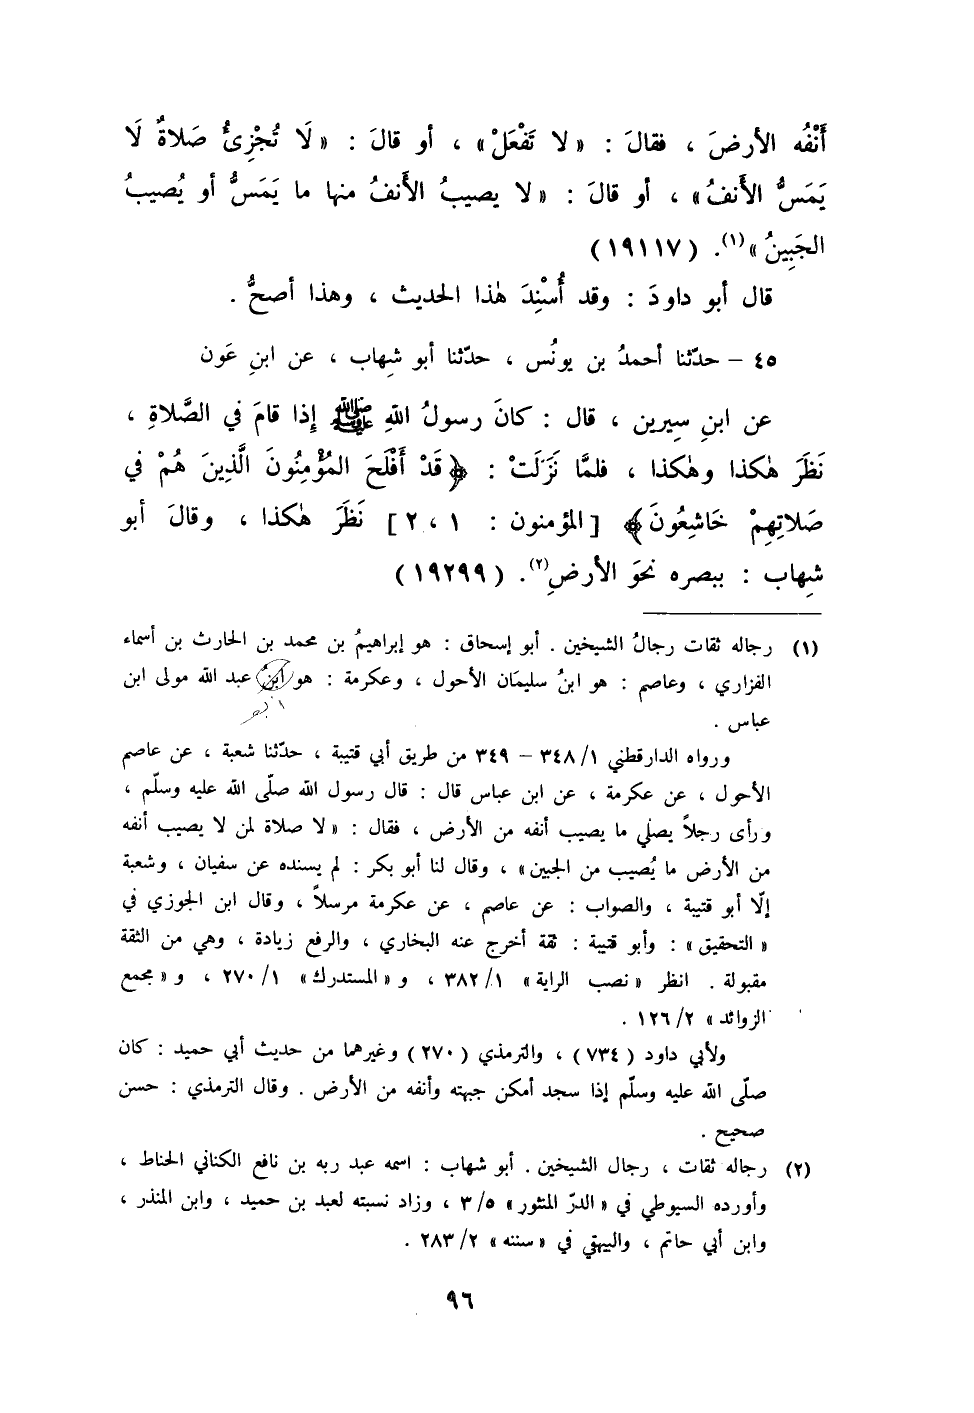 أَنْفُه الأرضَ ، فقالَ : « لا تَفْعَلْ » ، أو قالَ : « لَا تُجْزِئُ صَلاةٌ لَا
يَمَسُّ الأَنفُ » ، أو قالَ : « لا يصيبُ الأَنفُ منها ما يَمَسُّ أو يُصيبُ
الجَبِينُ »(١). ( ١٩١١٧ )
قال أبو داودَ : وقد أُسْنِدَ هٰذا الحديث ، وهذا أصحُّ .
٤٥ – حدّثنا أحمدُ بن يونُس ، حدّثنا أبو شِهاب ، عن ابنِ عَون
عن ابنِ سِيرين ، قال : كانَ رسولُ اللهِ ﷺ إِذا قامَ في الصَّلاةِ ،
نَظَرَ هٰكذا وهٰكذا ، فلمَّا نَزَلَتْ : ﴿ قَدْ أَفْلَحَ المُؤْمِنُونَ الَّذِينَ هُمْ في
صَلاتِهِمْ خَاشِعُونَ ﴾ [ المؤمنون : ١ ، ٢ ] نَظَرَ هٰكذا ، وقالَ أبو
شِهاب : ببصره نحوَ الأرضِ(٢). ( ١٩٢٩٩ )
(١) رجاله ثقات رجالُ الشيخين . أبو إسحاق : هو إبراهيمُ بن محمد بن الحارث بن أسماء
الفزاري ، وعاصم : هو ابنُ سليمَان الأحول ، وعكرمة : هو ابنُ عبد الله مولى ابن
عباس .
ورواه الدارقطني ١/ ٣٤٨ – ٣٤٩ من طريق أبي قتيبة ، حدّثنا شعبة ، عن عاصم
الأحول ، عن عكرمة ، عن ابن عباس قال : قال رسول الله صلّى الله عليه وسلّم ،
ورأى رجلاً يصلي ما يصيب أنفه من الأرض ، فقال : « لا صلاة لمن لا يصيب أنفه
من الأرض ما يُصيب من الجبين » ، وقال لنا أبو بكر : لم يسنده عن سفيان ، وشعبة
إلّا أبو قتيبة ، والصواب : عن عاصم ، عن عكرمة مرسلاً ، وقال ابن الجوزي في
« التحقيق » : وأبو قتيبة : ثقة أخرج عنه البخاري ، والرفع زيادة ، وهي من الثقة
مقبولة . انظر « نصب الراية » ١/ ٣٨٢ ، و « المستدرك » ١/ ٢٧٠ ، و « مجمع
الزوائد » ٢/ ١٢٦ .
ولأبي داود ( ٧٣٤ ) ، والترمذي ( ٢٧٠ ) وغيرهما من حديث أبي حميد : كان
صلّى الله عليه وسلّم إذا سجد أمكن جبهته وأنفه من الأرض . وقال الترمذي : حسن
صحيح .
(٢) رجاله ثقات ، رجال الشيخين . أبو شهاب : اسمه عبد ربه بن نافع الكناني الحناط ،
وأورده السيوطي في « الدرّ المنثور » ٥/ ٣ ، وزاد نسبته لعبد بن حميد ، وابن المنذر ،
وابن أبي حاتم ، والبيهقي في « سننه » ٢/ ٢٨٣ .
٩٦